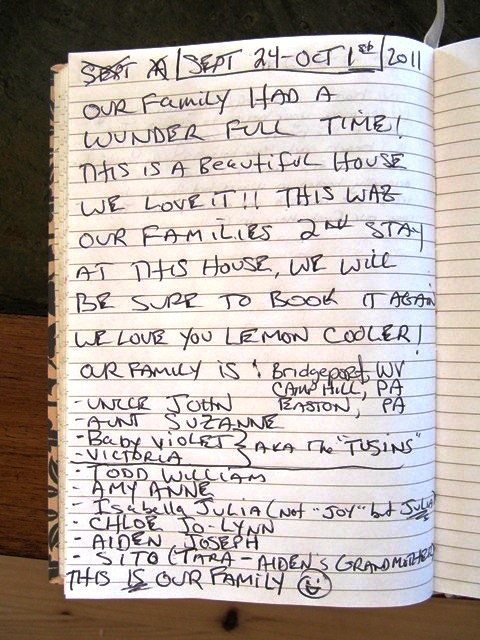 SEPT 24-OCT 1st 2011
OUR FAMILY HAD A
WUNDER FULL TIME!
THIS IS A BEAUTIFUL HOUSE
WE LOVE IT!! THIS WAS
OUR FAMILIES 2nd STAY
AT THIS HOUSE, WE WILL
BE SURE TO BOOK IT AGAIN
WE LOVE YOU LEMON COOLER!
OUR FAMILY IS: Bridgeport WV
CAMP HILL, PA
- UNCLE JOHN EASTON, PA
- AUNT SUZANNE
- Baby VIOLET } AKA The "TUSINS"
- VICTORIA
- TODD WILLIAM
- AMY ANNE
- Isabella JULIA (NOT "JOY" but JULIA)
- CHLOE JO-LYNN
- AIDEN JOSEPH
- SITO (TARA - AIDEN'S GRANDMOTHER)
THIS IS OUR FAMILY